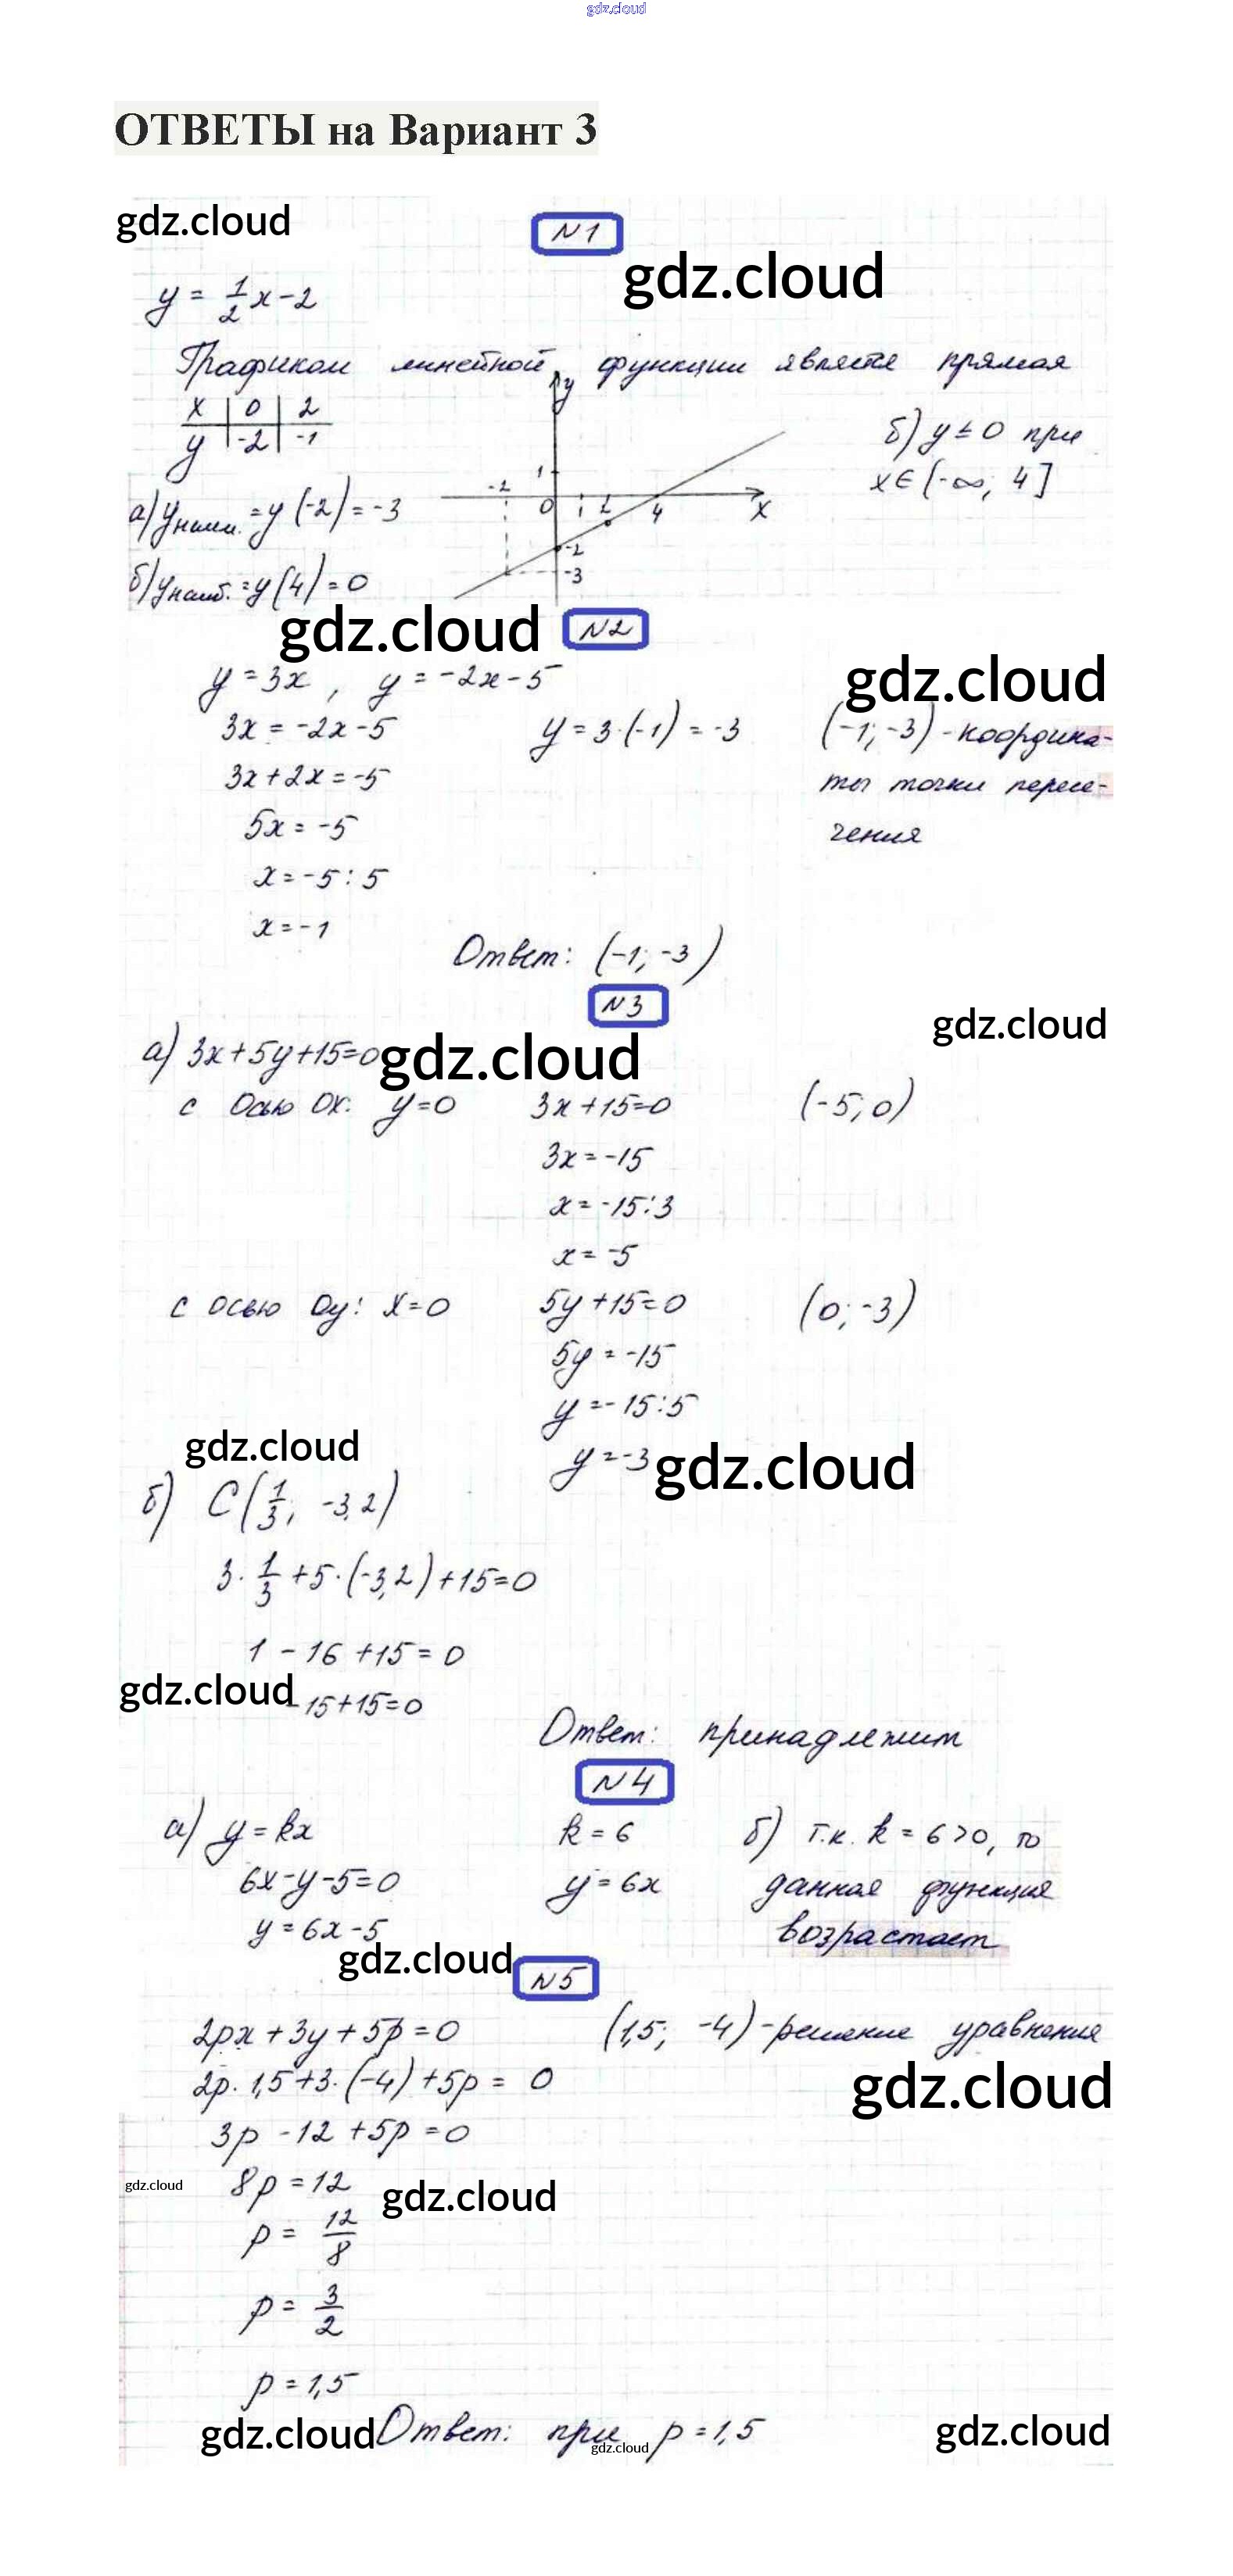 gdz.cloud
ОТВЕТЫ на Вариант 3
gdz.cloud
N1
gdz.cloud
y = 1/2 x - 2
Графиком линейной функции является прямая
x | 0 | 2
y | -2 | -1
y
1
-2
0
1
2
4
x
-2
-3
а) yнаим. = y(-2) = -3
б) yнаиб. = y(4) = 0
б) y ≤ 0 при
x ∈ (-∞; 4]
gdz.cloud
N2
gdz.cloud
y = 3x , y = -2x - 5
3x = -2x - 5
3x + 2x = -5
5x = -5
x = -5 : 5
x = -1
y = 3·(-1) = -3
(-1; -3) - координа-
ты точки пересе-
чения
Ответ: (-1; -3)
N3
gdz.cloud
а) 3x + 5y + 15 = 0
gdz.cloud
с осью Ox: y = 0 3x + 15 = 0 (-5; 0)
3x = -15
x = -15 : 3
x = -5
с осью Oy: x = 0 5y + 15 = 0 (0; -3)
5y = -15
y = -15 : 5
y = -3
gdz.cloud
gdz.cloud
б) C(1/3; -3,2)
3· 1/3 + 5·(-3,2) + 15 = 0
1 - 16 + 15 = 0
gdz.cloud
-15 + 15 = 0
Ответ: принадлежит
N4
а) y = kx k = 6 б) т.к. k = 6 > 0, то
6x - y - 5 = 0 y = 6x данная функция
y = 6x - 5 возрастает
gdz.cloud
N5
2px + 3y + 5p = 0 (1,5; -4) - решение уравнения
2p· 1,5 + 3·(-4) + 5p = 0
gdz.cloud
3p - 12 + 5p = 0
gdz.cloud
8p = 12
gdz.cloud
p = 12/8
p = 3/2
p = 1,5
gdz.cloud
Ответ: при p = 1,5
gdz.cloud
gdz.cloud